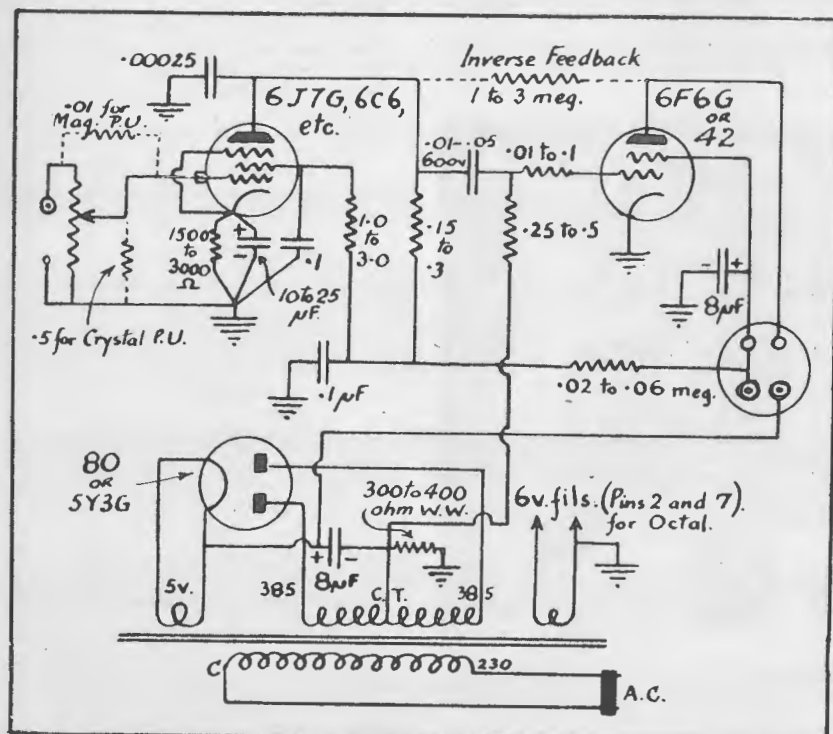 .00025
Inverse Feedback
1 to 3 meg.
6J7G, 6C6,
etc.
6F6G
OR
42
.01 for
Mag. P.U.
.01-.05
600v
.01 to .1
1500
to
3000
Ω
+
-
.1
10 to 25
µF.
1.0
to
3.0
.15
to
.3
.25 to .5
- +
8µF
.5 for Crystal P.U.
.1µF
.02 to .06 meg.
80
OR
5Y3G
300 to 400
ohm W.W.
6v. fils. (Pins 2 and 7).
for Octal.
+ -
8µF
5v.
385
C.T.
385
C
230
A.C.